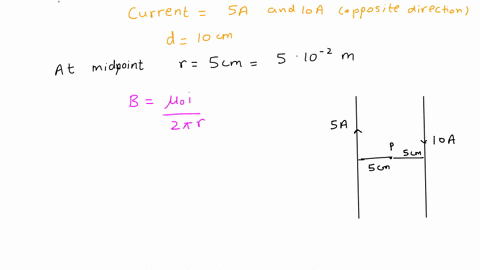 Current = 5A and 10A (opposite direction)
d = 10 cm
At midpoint r = 5 cm = 5 · 10⁻² m
B = μ₀i / 2πr
5A
10A
P
5cm
5cm